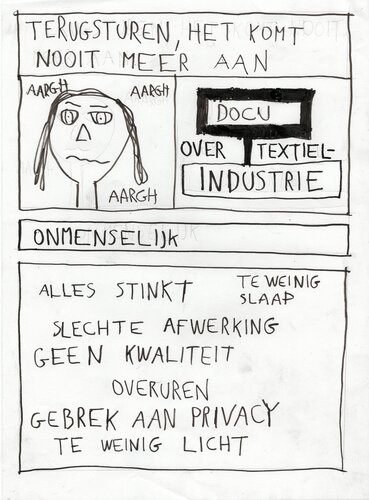 TERUGSTUREN, HET KOMT
NOOIT MEER AAN
AARGH AARGH
AARGH
DOCU
OVER TEXTIEL-
INDUSTRIE
ONMENSELIJK
ALLES STINKT
TE WEINIG
SLAAP
SLECHTE AFWERKING
GEEN KWALITEIT
OVERUREN
GEBREK AAN PRIVACY
TE WEINIG LICHT